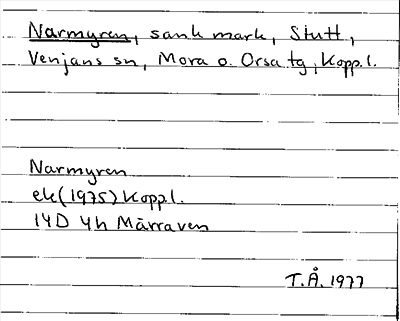 Narmyren, sank mark, Stutt,
Venjans sn, Mora o. Orsa tg, Kopp.l.
Narmyren
ek(1975) Kopp.l.
14D 4h Märraven
T.Å. 1977